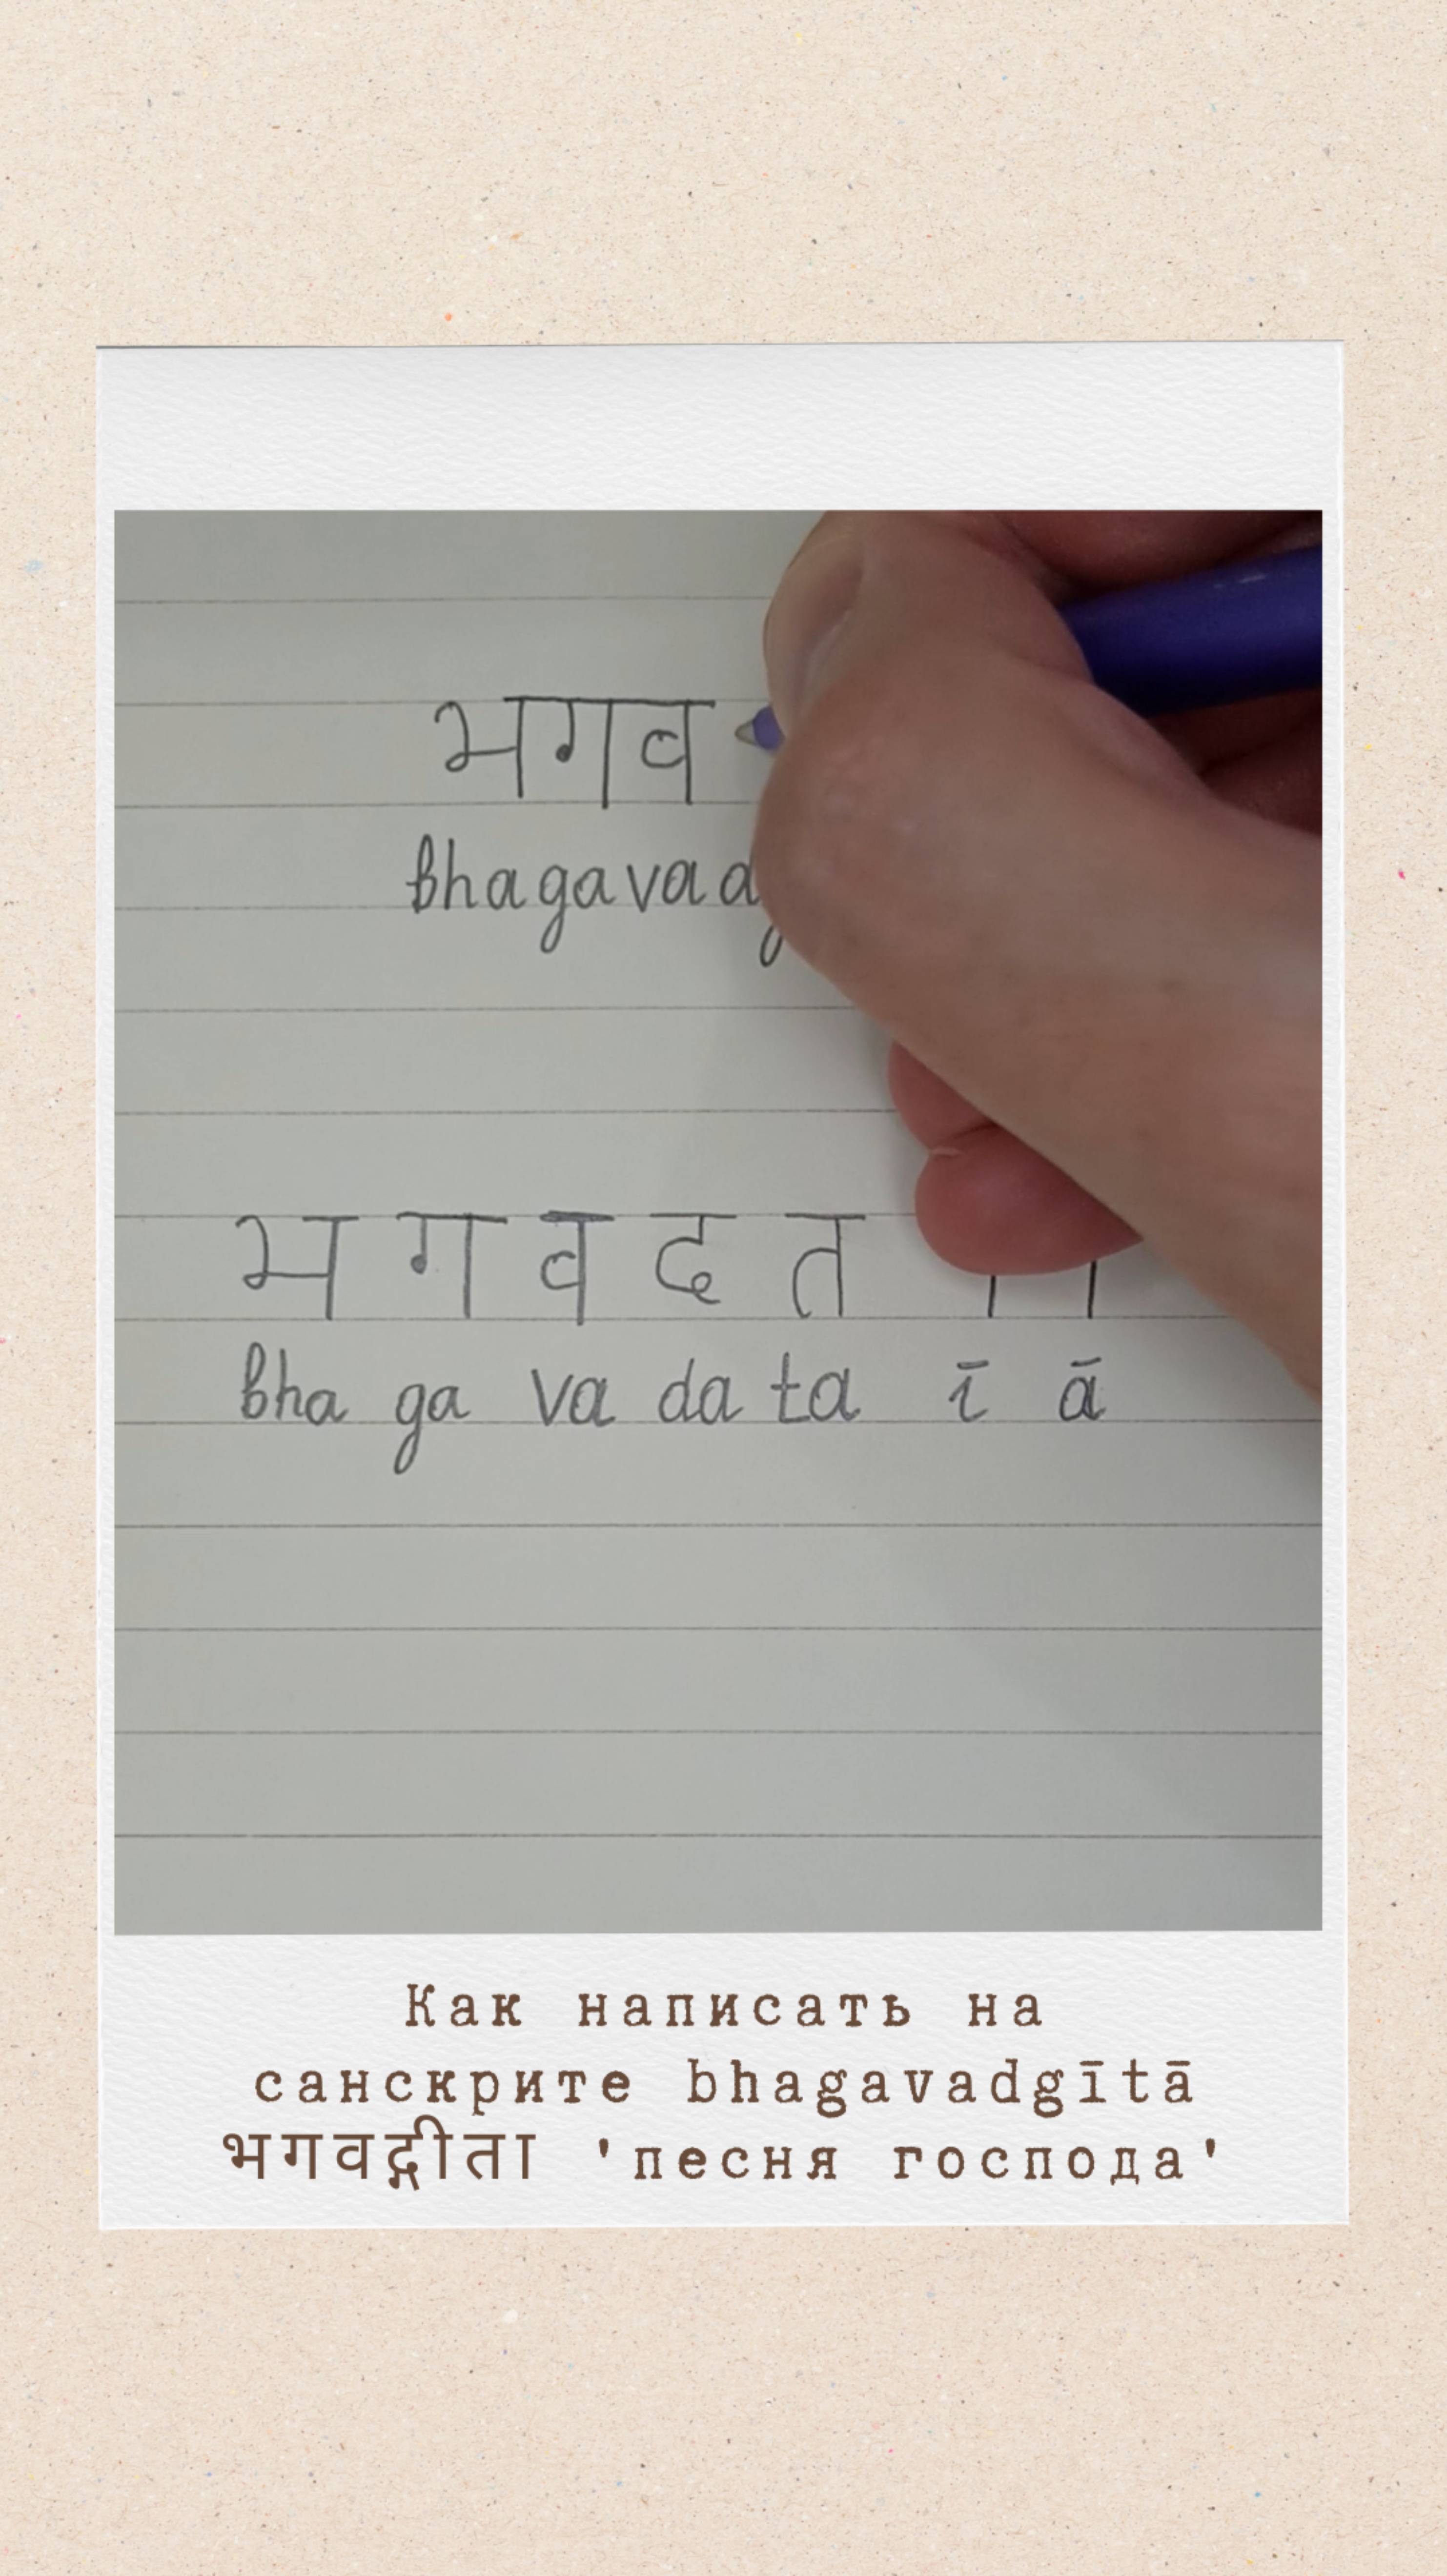 भगव
bhagavad
भ ग व द त
bha ga va da ta ī ā
Как написать на
санскрите bhagavadgītā
भगवद्गीता 'песня господа'